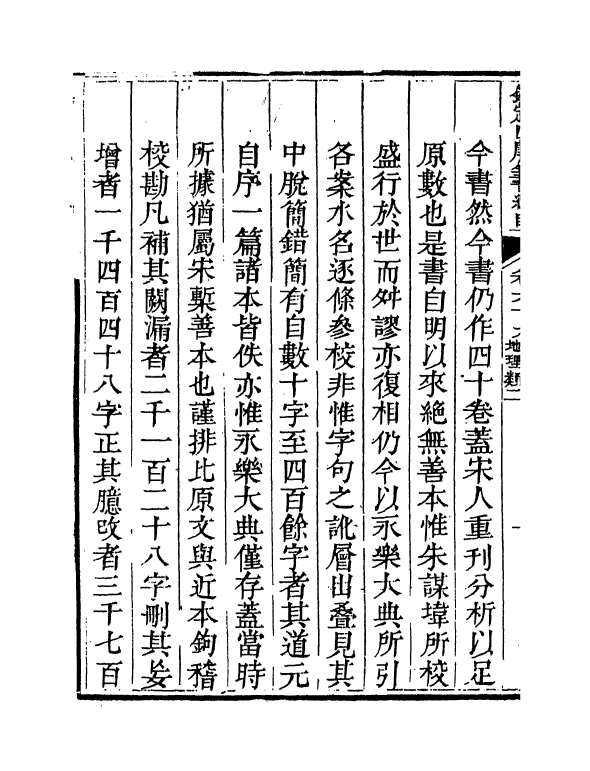 欽定四庫全書總目 卷六十九 地理類二
今書然今書仍作四十卷蓋宋人重刊分析以足
原數也是書自明以來絶無善本惟朱謀㙔所校
盛行於世而舛謬亦復相仍今以永樂大典所引
各案水名逐條參校非惟字句之訛層出疊見其
中脫簡錯簡有自數十字至四百餘字者其道元
自序一篇諸本皆佚亦惟永樂大典僅存蓋當時
所據猶屬宋槧善本也謹排比原文與近本鉤稽
校勘凡補其闕漏者二千一百二十八字刪其妄
增者一千四百四十八字正其臆改者三千七百